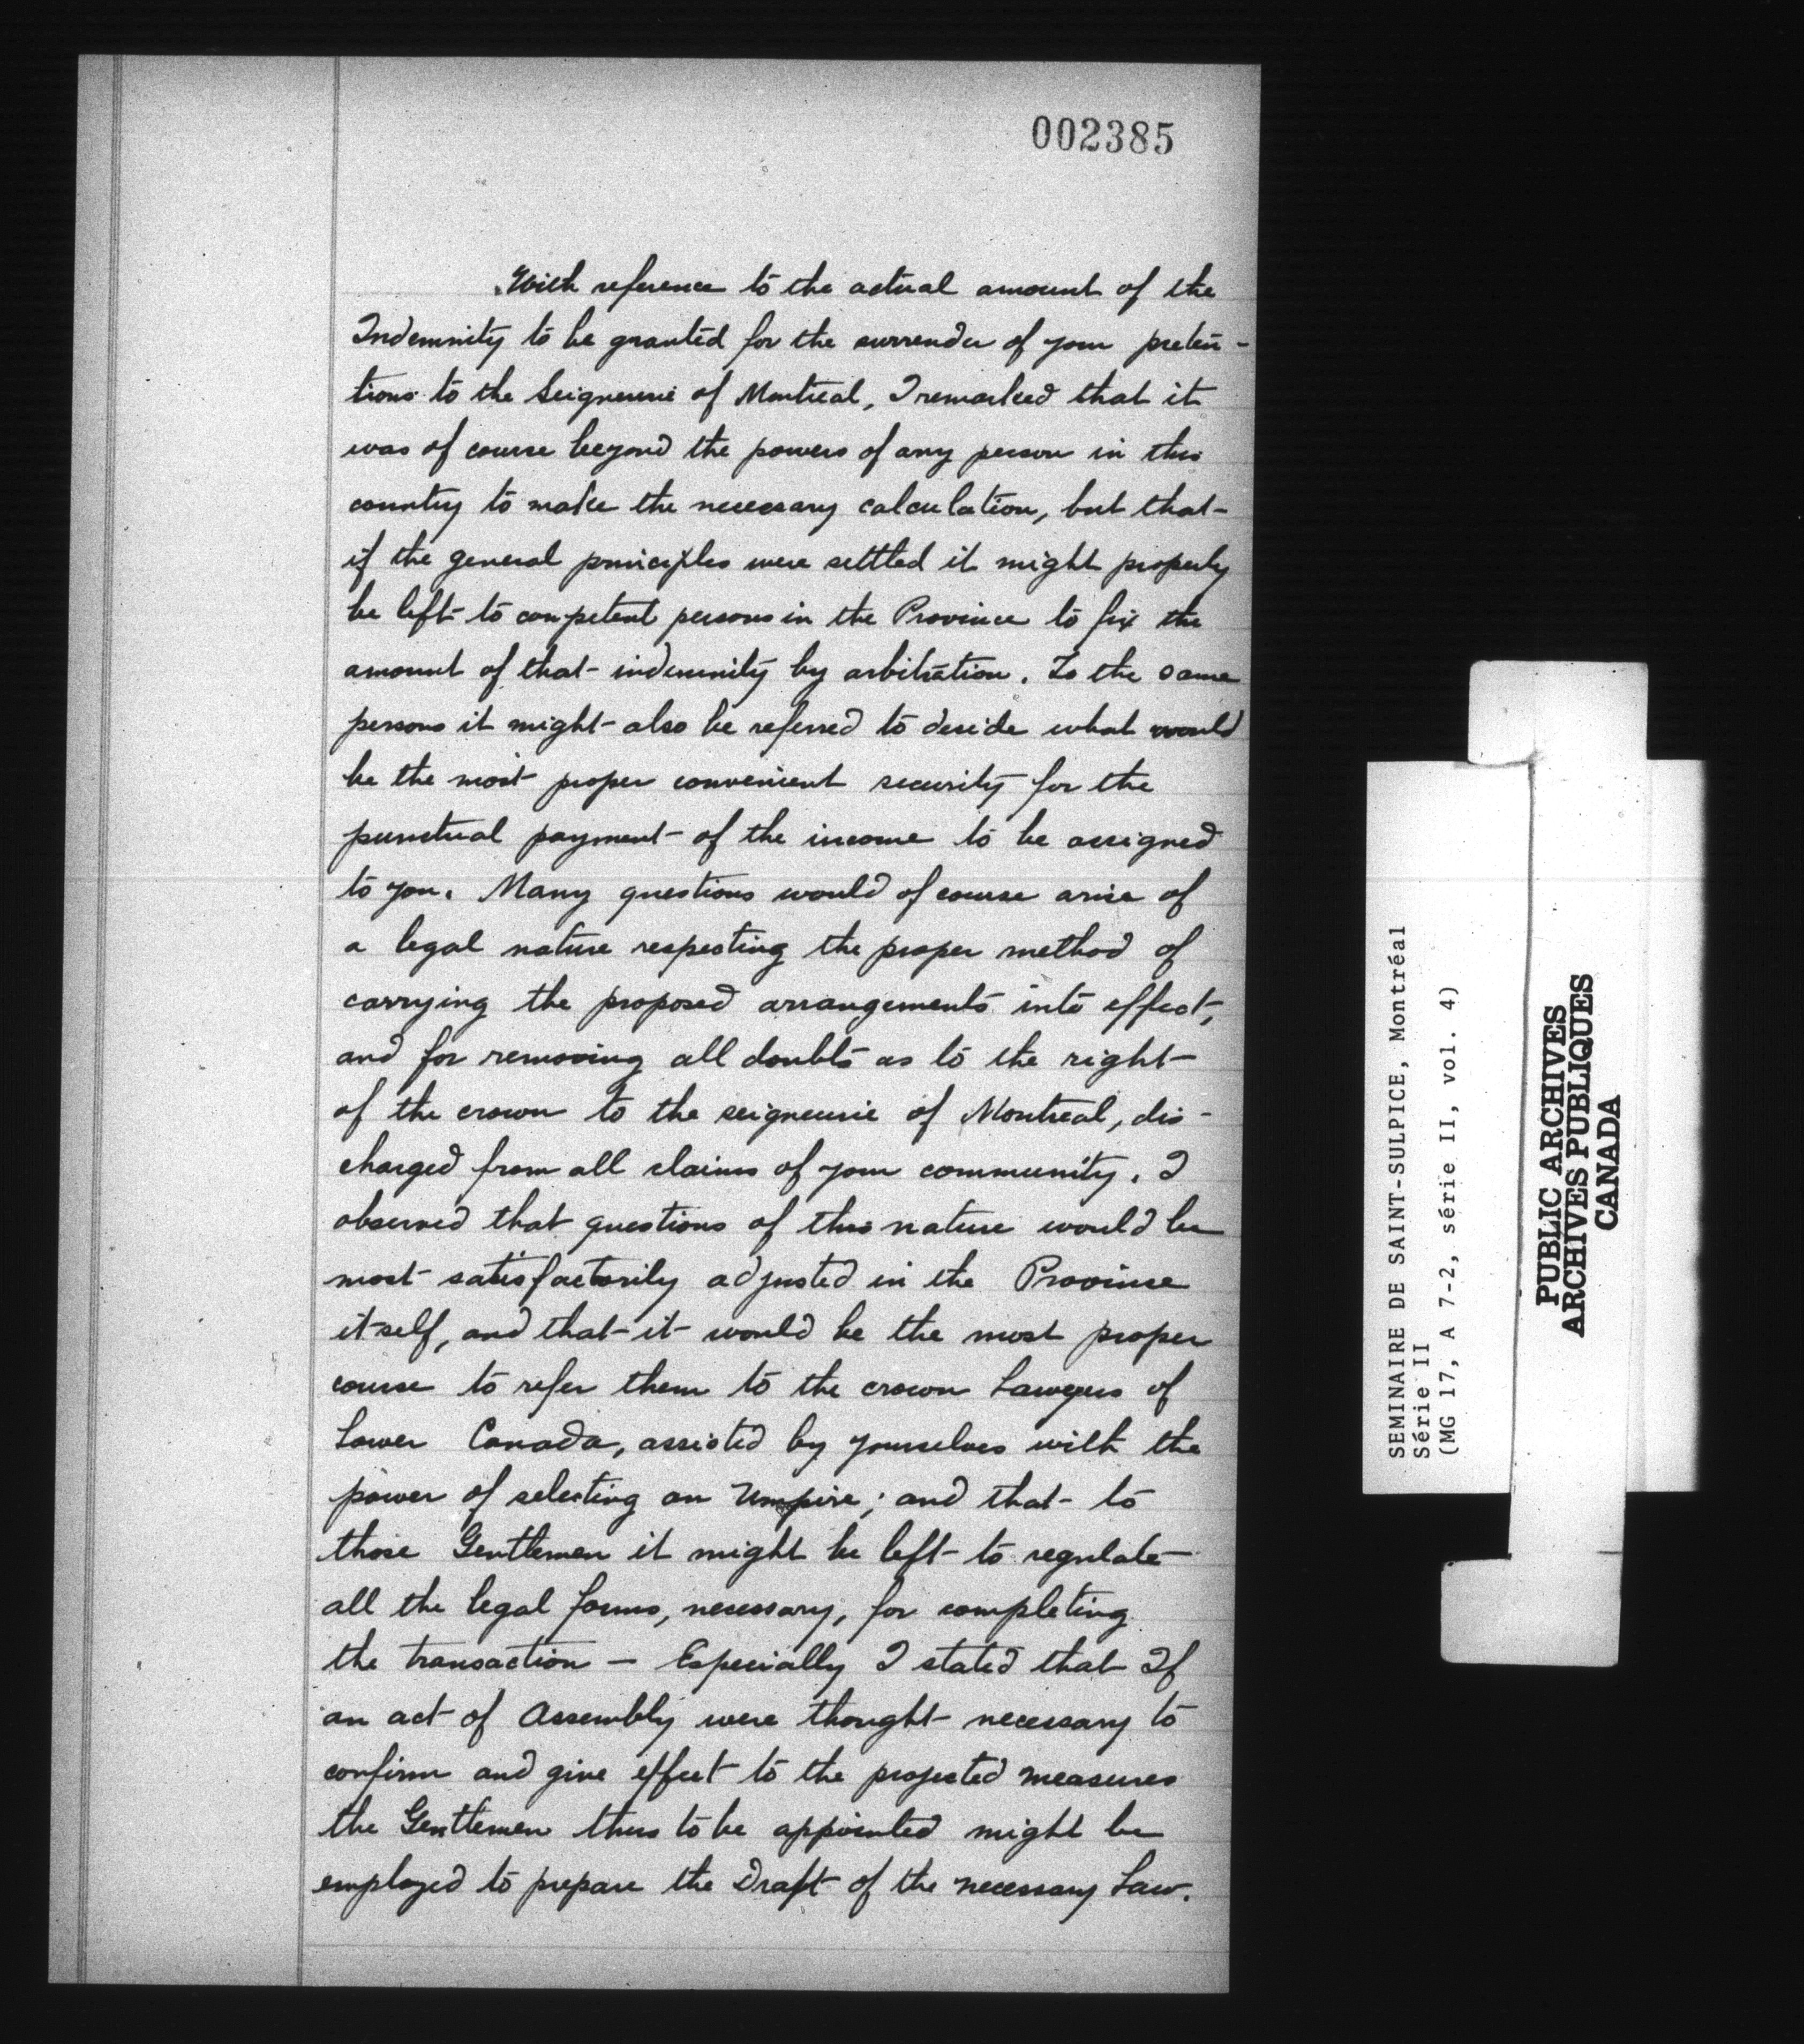 002385
With reference to the actual amount of the
Indemnity to be granted for the surrender of your preten-
tions to the Seigneurie of Montreal, I remarked that it
was of course beyond the powers of any person in this
country to make the necessary calculation, but that
if the general principles were settled it might properly
be left to competent persons in the Province to fix the
amount of that indemnity by arbitration. To the same
persons it might also be referred to decide what would
be the most proper convenient security for the
punctual payment of the income to be assigned
to you. Many questions would of course arise of
a legal nature respecting the proper method of
carrying the proposed arrangements into effect,
and for removing all doubts as to the right
of the crown to the seigneurie of Montreal, dis-
charged from all claims of your community. I
observed that questions of this nature would be
most satisfactorily adjusted in the Province
itself, and that it would be the most proper
course to refer them to the crown Lawyers of
Lower Canada, assisted by yourselves with the
power of selecting an Umpire; and that to
those Gentlemen it might be left to regulate
all the legal forms, necessary, for completing
the transaction — Especially I stated that If
an act of Assembly were thought necessary to
confirm and give effect to the projected measures
the Gentlemen thus to be appointed might be
employed to prepare the Draft of the necessary Law.
SEMINAIRE DE SAINT-SULPICE, Montréal
Série II
(MG 17, A 7-2, série II, vol. 4)
PUBLIC ARCHIVES
ARCHIVES PUBLIQUES
CANADA